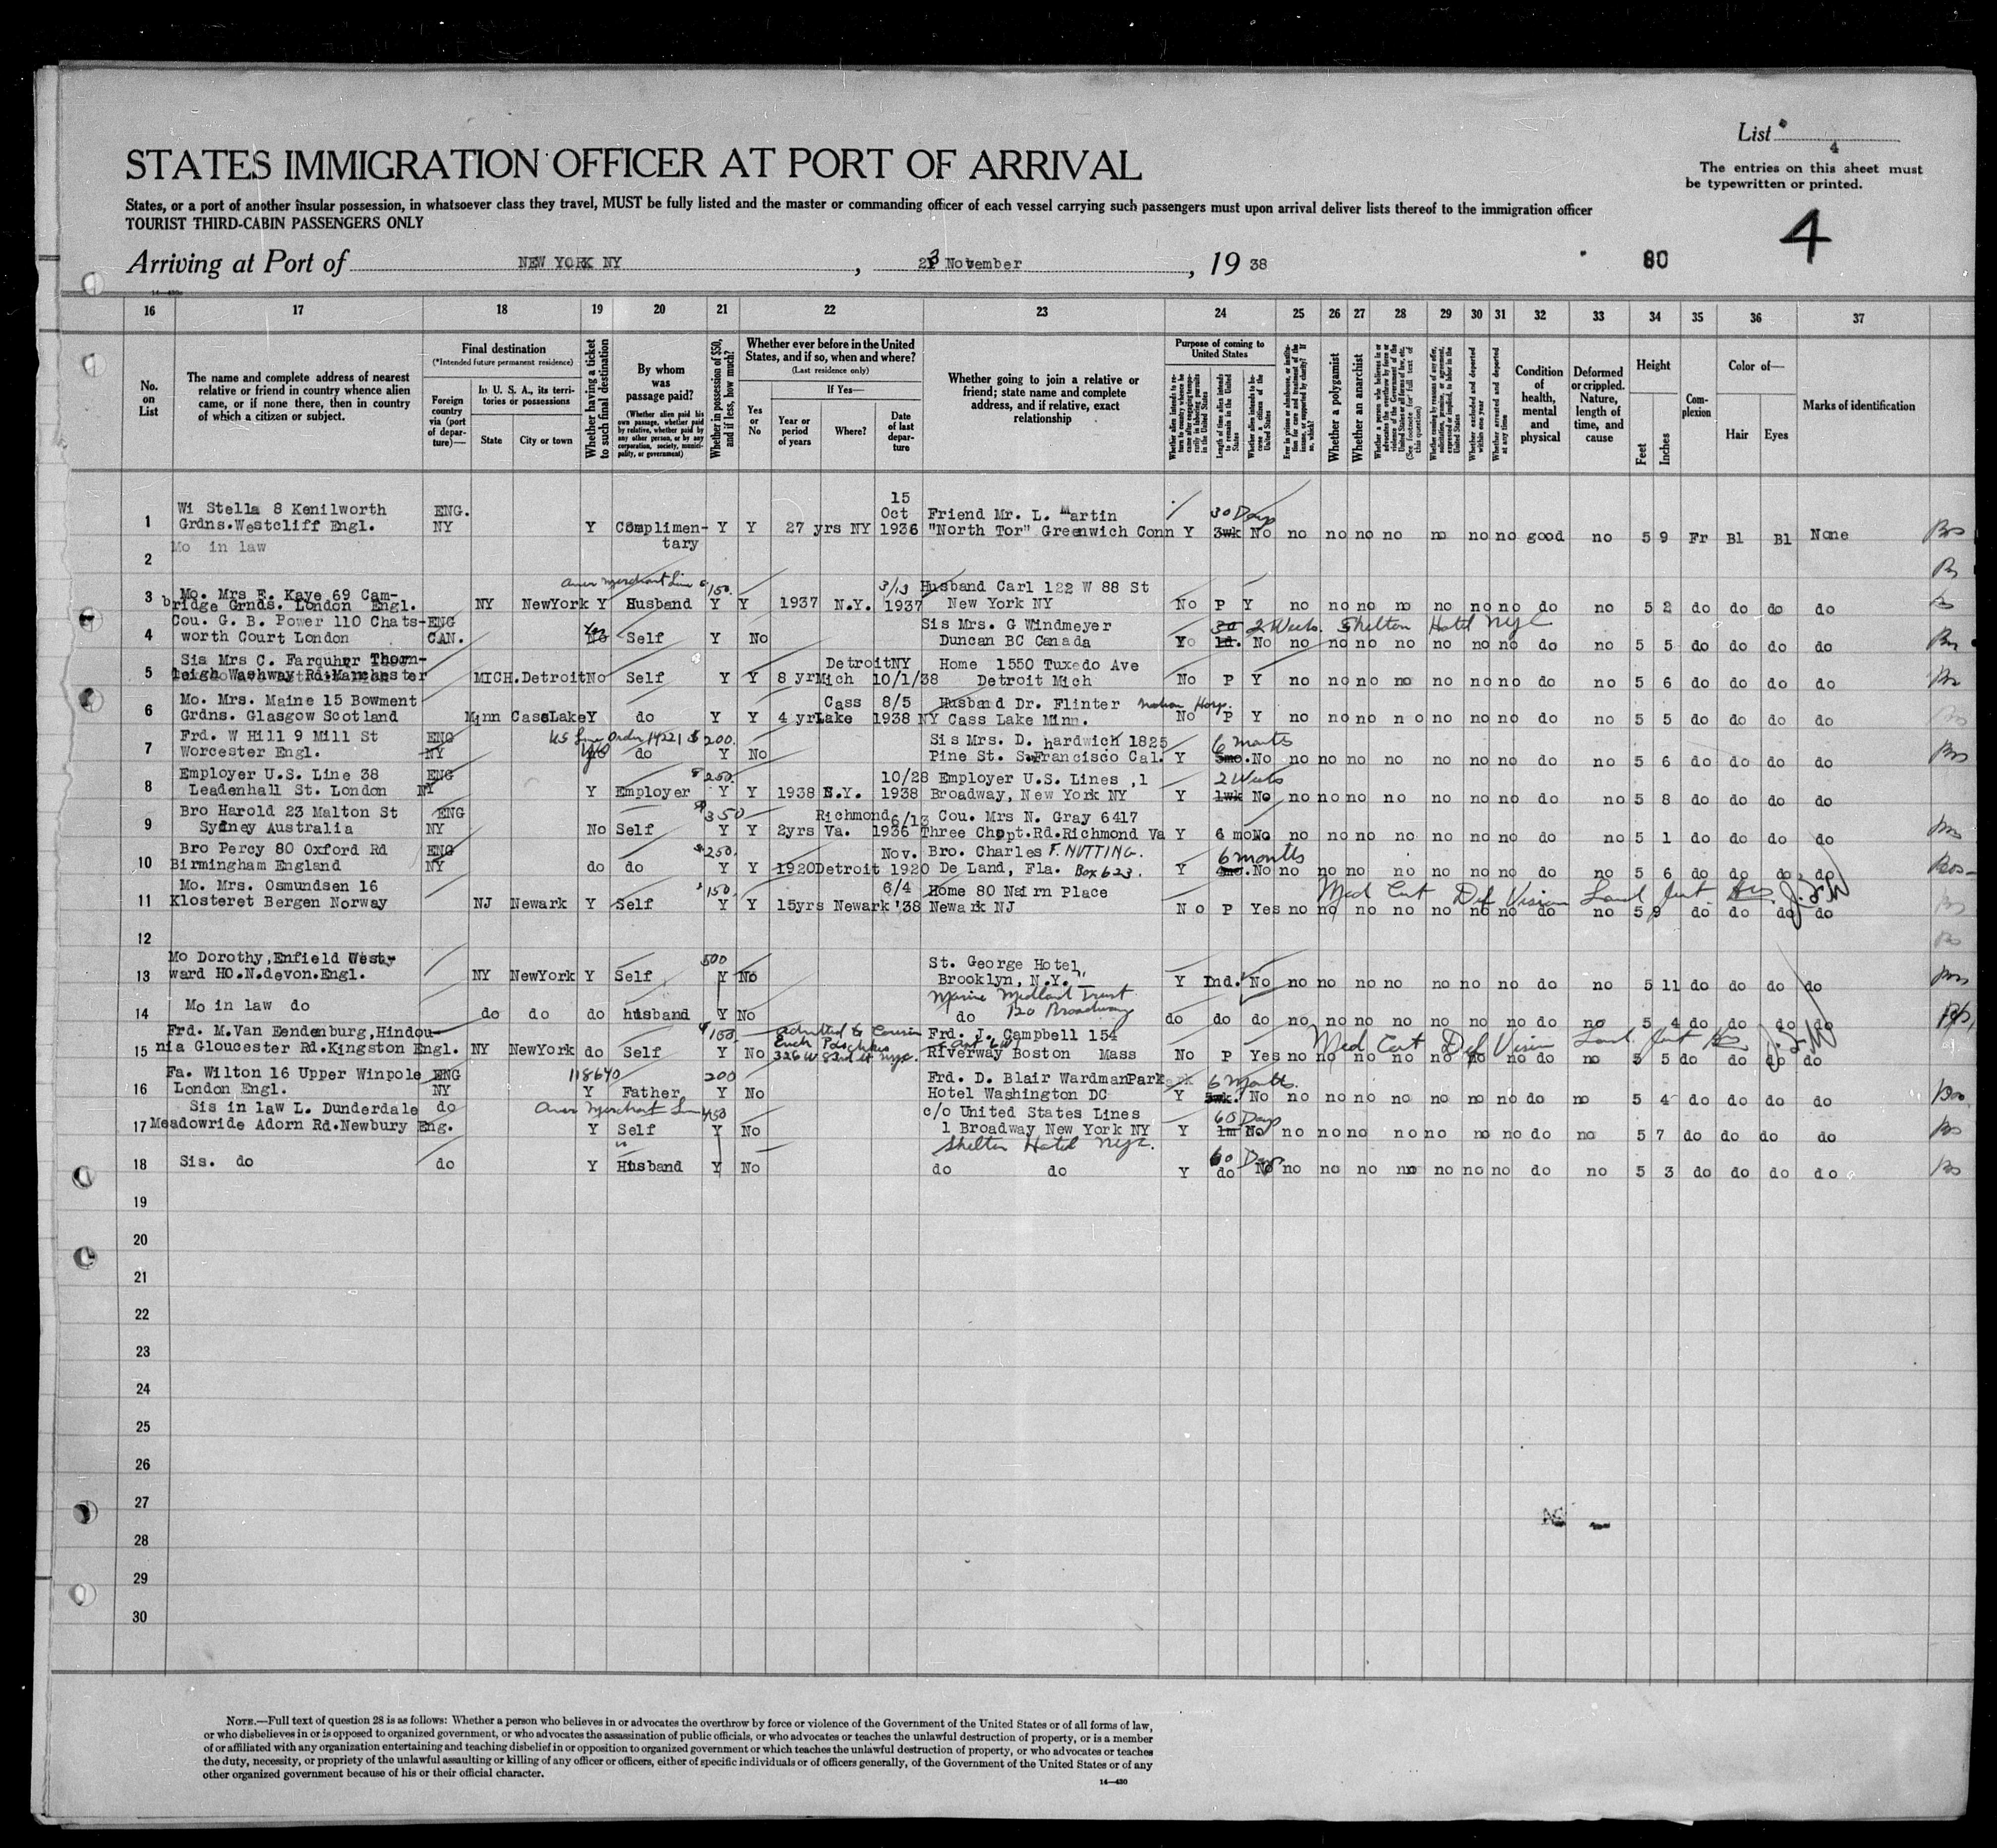 List
4
The entries on this sheet must
be typewritten or printed.
4
STATES IMMIGRATION OFFICER AT PORT OF ARRIVAL
States, or a port of another insular possession, in whatsoever class they travel, MUST be fully listed and the master or commanding officer of each vessel carrying such passengers must upon arrival deliver lists thereof to the immigration officer
TOURIST THIRD-CABIN PASSENGERS ONLY
Arriving at Port of NEW YORK NY, 23 November, 19 38
80
16 17 18 19 20 21 22 23 24 25 26 27 28 29 30 31 32 33 34 35 36 37
No. on List
The name and complete address of nearest relative or friend in country whence alien came, or if none there, then in country of which a citizen or subject.
Final destination
(*Intended future permanent residence)
Foreign country via (port of departure)—
In U. S. A., its territories or possessions
State
City or town
Whether having a ticket to such final destination
By whom was passage paid?
(Whether alien paid his own passage, whether paid by relative, whether paid by any other person, or by any corporation, society, municipality, or government)
Whether in possession of $50, and if less, how much?
Whether ever before in the United States, and if so, when and where?
(Last residence only)
Yes or No
If Yes—
Year or period of years
Where?
Date of last departure
Whether going to join a relative or friend; state name and complete address, and if relative, exact relationship
Purpose of coming to United States
Length of time alien intends to remain in the United States
Whether a polygamist
Whether an anarchist
Whether arrested and deported at any time
Condition of health, mental and physical
Deformed or crippled. Nature, length of time, and cause
Height
Feet
Inches
Complexion
Color of—
Hair
Eyes
Marks of identification
15
Wi Stella 8 Kenilworth ENG. Oct Friend Mr. L. Martin 30 Days
1 Grdns.Westcliff Engl. NY Y Complimen- Y Y 27 yrs NY 1936 "North Tor" Greenwich Conn Y 3wk No no no no no no no no good no 5 9 Fr Bl Bl None
Mo in law tary
2
Amer Merchant Line 150. 3/13 Husband Carl 122 W 88 St
3 Mo. Mrs F. Kaye 69 Cam-
bridge Grnds. London Engl. NY NewYork Y Husband Y Y 1937 N.Y. 1937 New York NY No P Y no no no no no no no do no 5 2 do do do do
Cou. G. B. Power 110 Chats- ENG Yes Sis Mrs. G Windmeyer 2 Weeks. Shelton Hotel NYC
4 worth Court London CAN. No Self Y No Duncan BC Canada Y 1d. No no no no no no no no do no 5 5 do do do do
Sis Mrs C. Farquhr Thorn- DetroitNY Home 1550 Tuxedo Ave
5 leigh Washway Rd.Manchester MICH.Detroit No Self Y Y 8 yr Mich 10/1/38 Detroit Mich No P Y no no no no no no no do no 5 6 do do do do
Mo. Mrs. Maine 15 Bowment Cass 8/5 Husband Dr. Flinter
6 Grdns. Glasgow Scotland Minn CassLake Y do Y Y 4 yr Lake 1938 NY Cass Lake Minn. No P Y no no no no no no no do no 5 5 do do do do
Frd. W Hill 9 Mill St ENG US Line Order 14221 $200. Sis Mrs. D. hardwich 1825 6 months
7 Worcester Engl. NY No do Y No Pine St. S.Francisco Cal. Y 5mo. No no no no no no no no do no 5 6 do do do do
Employer U.S. Line 38 ENG $250. 10/28 Employer U.S. Lines ,1 2 Weeks
8 Leadenhall St. London NY Y Employer Y Y 1938 N.Y. 1938 Broadway, New York NY Y 1wk No no no no no no no no do no 5 8 do do do do
Bro Harold 23 Malton St ENG $350 Richmond 6/13 Cou. Mrs N. Gray 6417
9 Sydney Australia NY No Self Y Y 2yrs Va. 1936 Three Chopt.Rd.Richmond Va Y 6 mo No no no no no no no no do no 5 1 do do do do
Bro Percy 80 Oxford Rd ENG $250. Nov. Bro. Charles F. NUTTING. 6 months
10 Birmingham England NY do do Y Y 1920 Detroit 1920 De Land, Fla. Box 623. Y No no no no no no no no do no 5 6 do do do do
Mo. Mrs. Osmundsen 16 $150. 6/4 Home 80 Nairn Place Med Cert Def Vision
11 Klosteret Bergen Norway NJ Newark Y Self Y Y 15yrs Newark '38 Newark NJ No P Yes no no no no no no no do no 5 9 do do do do
12
Mo Dorothy,Enfield Westy- 500 St. George Hotel
13 ward HO.N.devon.Engl. NY NewYork Y Self Y No Brooklyn, N.Y. Y Ind. No no no no no no no no do no 5 11 do do do do
Marine Midland Trust
14 Mo in law do do do do husband Y No do 120 Broadway do do do no no no no no no no do no 5 4 do do do do
Frd. M.Van Eendenburg,Hindou- $150 admitted to Cousin Frd. J. Campbell 154 Med Cert Def Vision
15 nia Gloucester Rd.Kingston Engl. NY NewYork do Self Y No 326 W 83rd St NYC. Riverway Boston Mass No P Yes no no no no no no no do no 5 5 do do do do
Fa. Wilton 16 Upper Winpole ENG 118640 200 Frd. D. Blair WardmanPark 6 Months.
16 London Engl. NY Y Father Y No Hotel Washington DC Y No no no no no no no no do no 5 4 do do do do
Sis in law L. Dunderdale do Amer Merchant Line 450 c/o United States Lines 60 Days
17 Meadowride Adorn Rd.Newbury Eng. Y Self Y No 1 Broadway New York NY Y 1m No no no no no no no no do no 5 7 do do do do
Shelton Hotel NYC.
60 Days
18 Sis. do do Y Husband Y No do do Y do No no no no no no no no do no 5 3 do do do do
19
20
21
22
23
24
25
26
27
28
29
30
NOTE.—Full text of question 28 is as follows: Whether a person who believes in or advocates the overthrow by force or violence of the Government of the United States or of all forms of law,
or who disbelieves in or is opposed to organized government, or who advocates the assassination of public officials, or who advocates or teaches the unlawful destruction of property, or is a member
of or affiliated with any organization entertaining and teaching disbelief in or opposition to organized government or which teaches the unlawful destruction of property, or who advocates or teaches
the duty, necessity, or propriety of the unlawful assaulting or killing of any officer or officers, either of specific individuals or of officers generally, of the Government of the United States or of any
other organized government because of his or their official character.
14—430